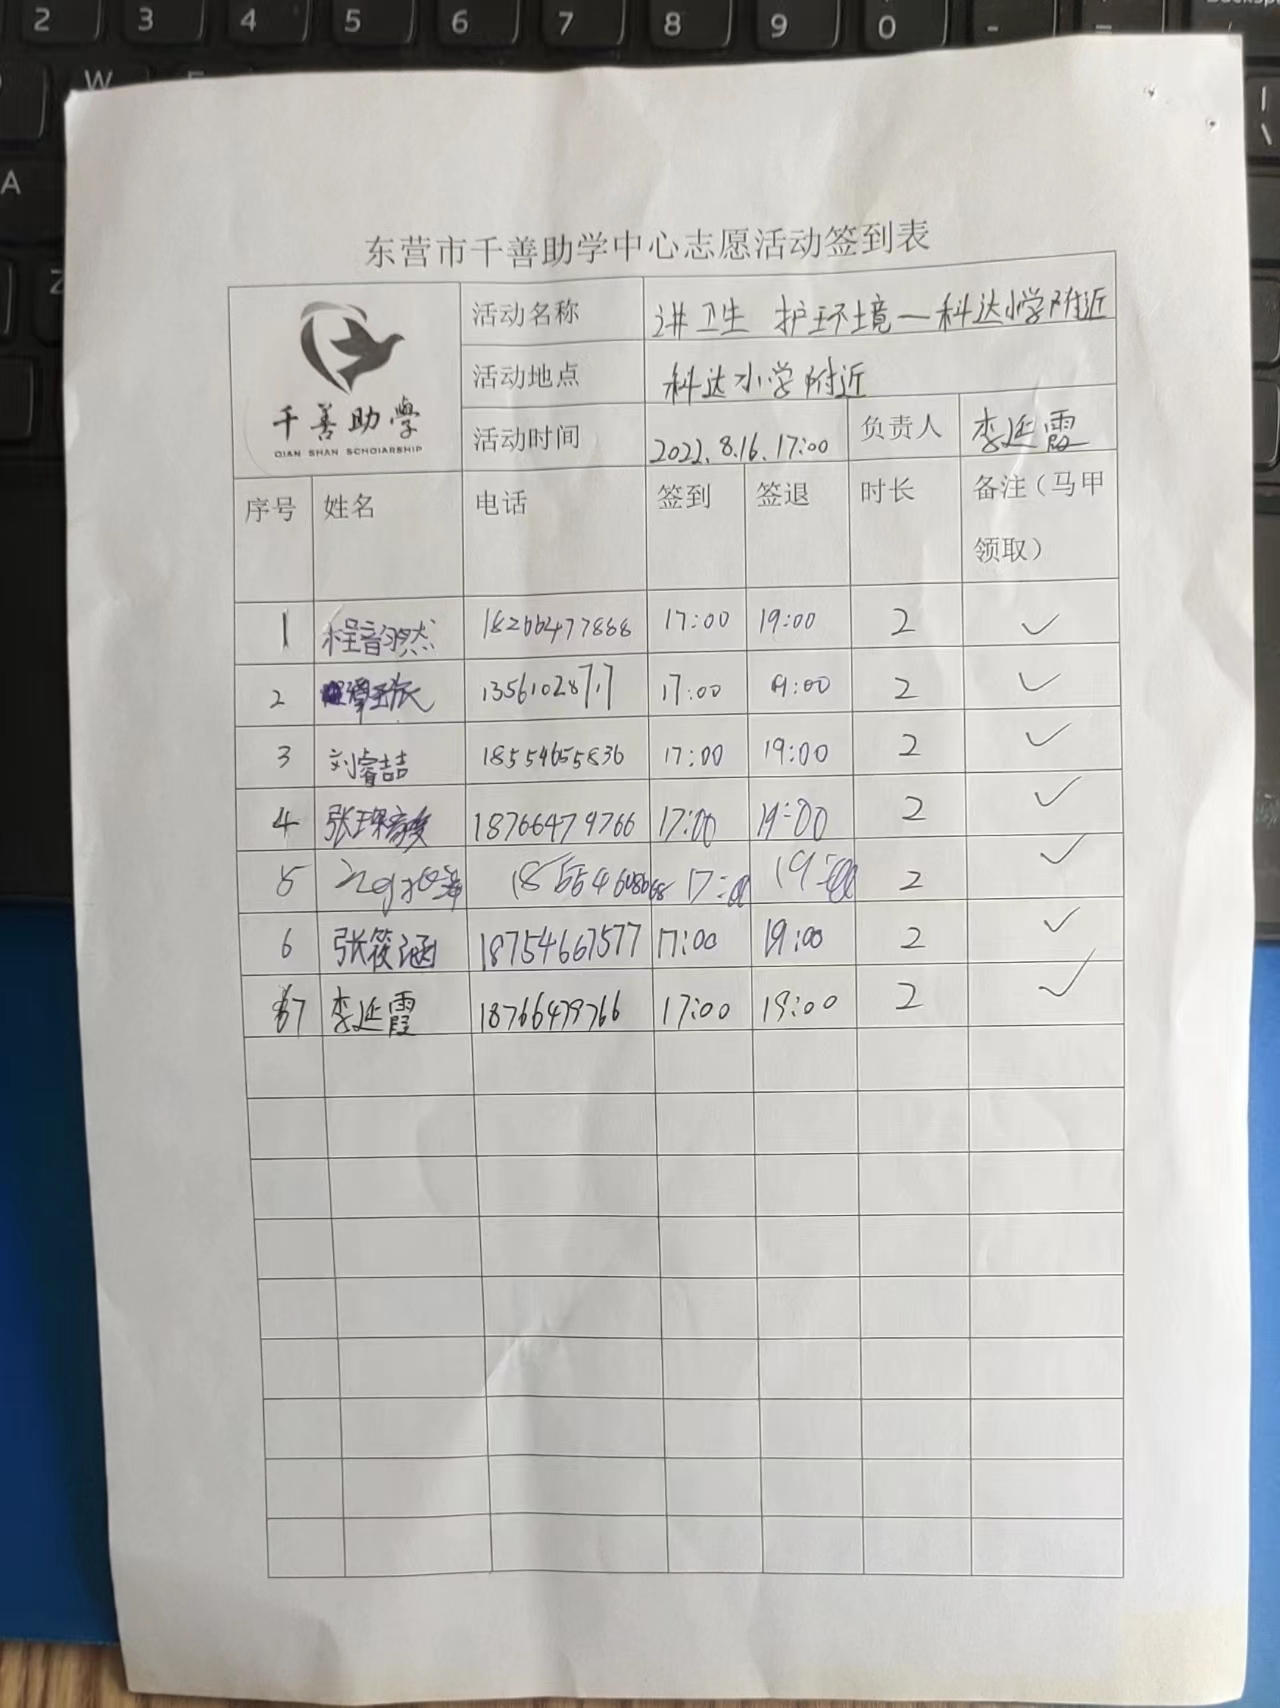 2 3 4 5 6 7 8 9 0 -
W
A
Z
东营市千善助学中心志愿活动签到表
千善助学
QIAN SHAN SCHOlARSHIP
活动名称 讲卫生 护环境—科达小学附近
活动地点 科达小学附近
活动时间 2022.8.16.17:00 负责人 李延霞
序号 姓名 电话 签到 签退 时长 备注（马甲
领取）
1 程韵然 18266477868 17:00 19:00 2 ✓
2 17:00 19:00 2 ✓
3 刘睿喆 18554655836 17:00 19:00 2 ✓
4 张 18766479766 17:00 19:00 2 ✓
5 17:00 19:00 2 ✓
6 张筱涵 18754667577 17:00 19:00 2 ✓
7 李延霞 18766479766 17:00 19:00 2 ✓